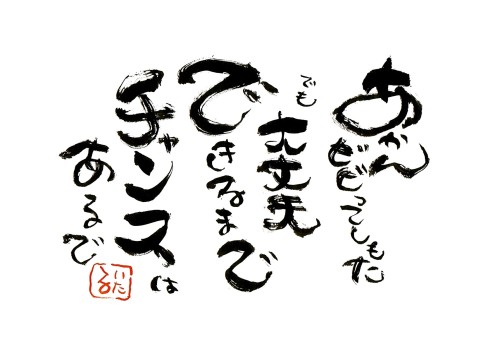 あかん
ビビってしもた
でも
大丈夫
できるまで
チャンスは
あるで
いたる